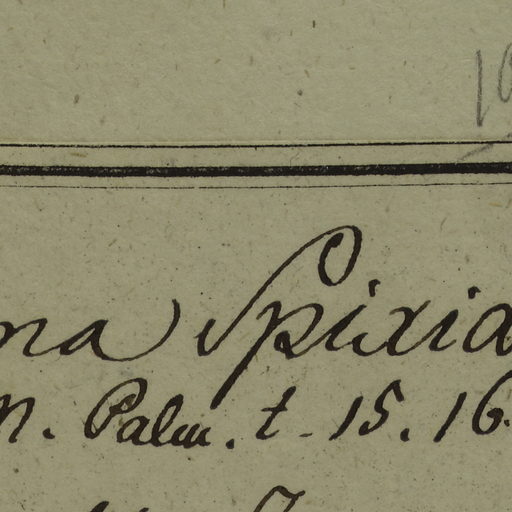 10
na Spixia
n. Palm. t. 15. 16.